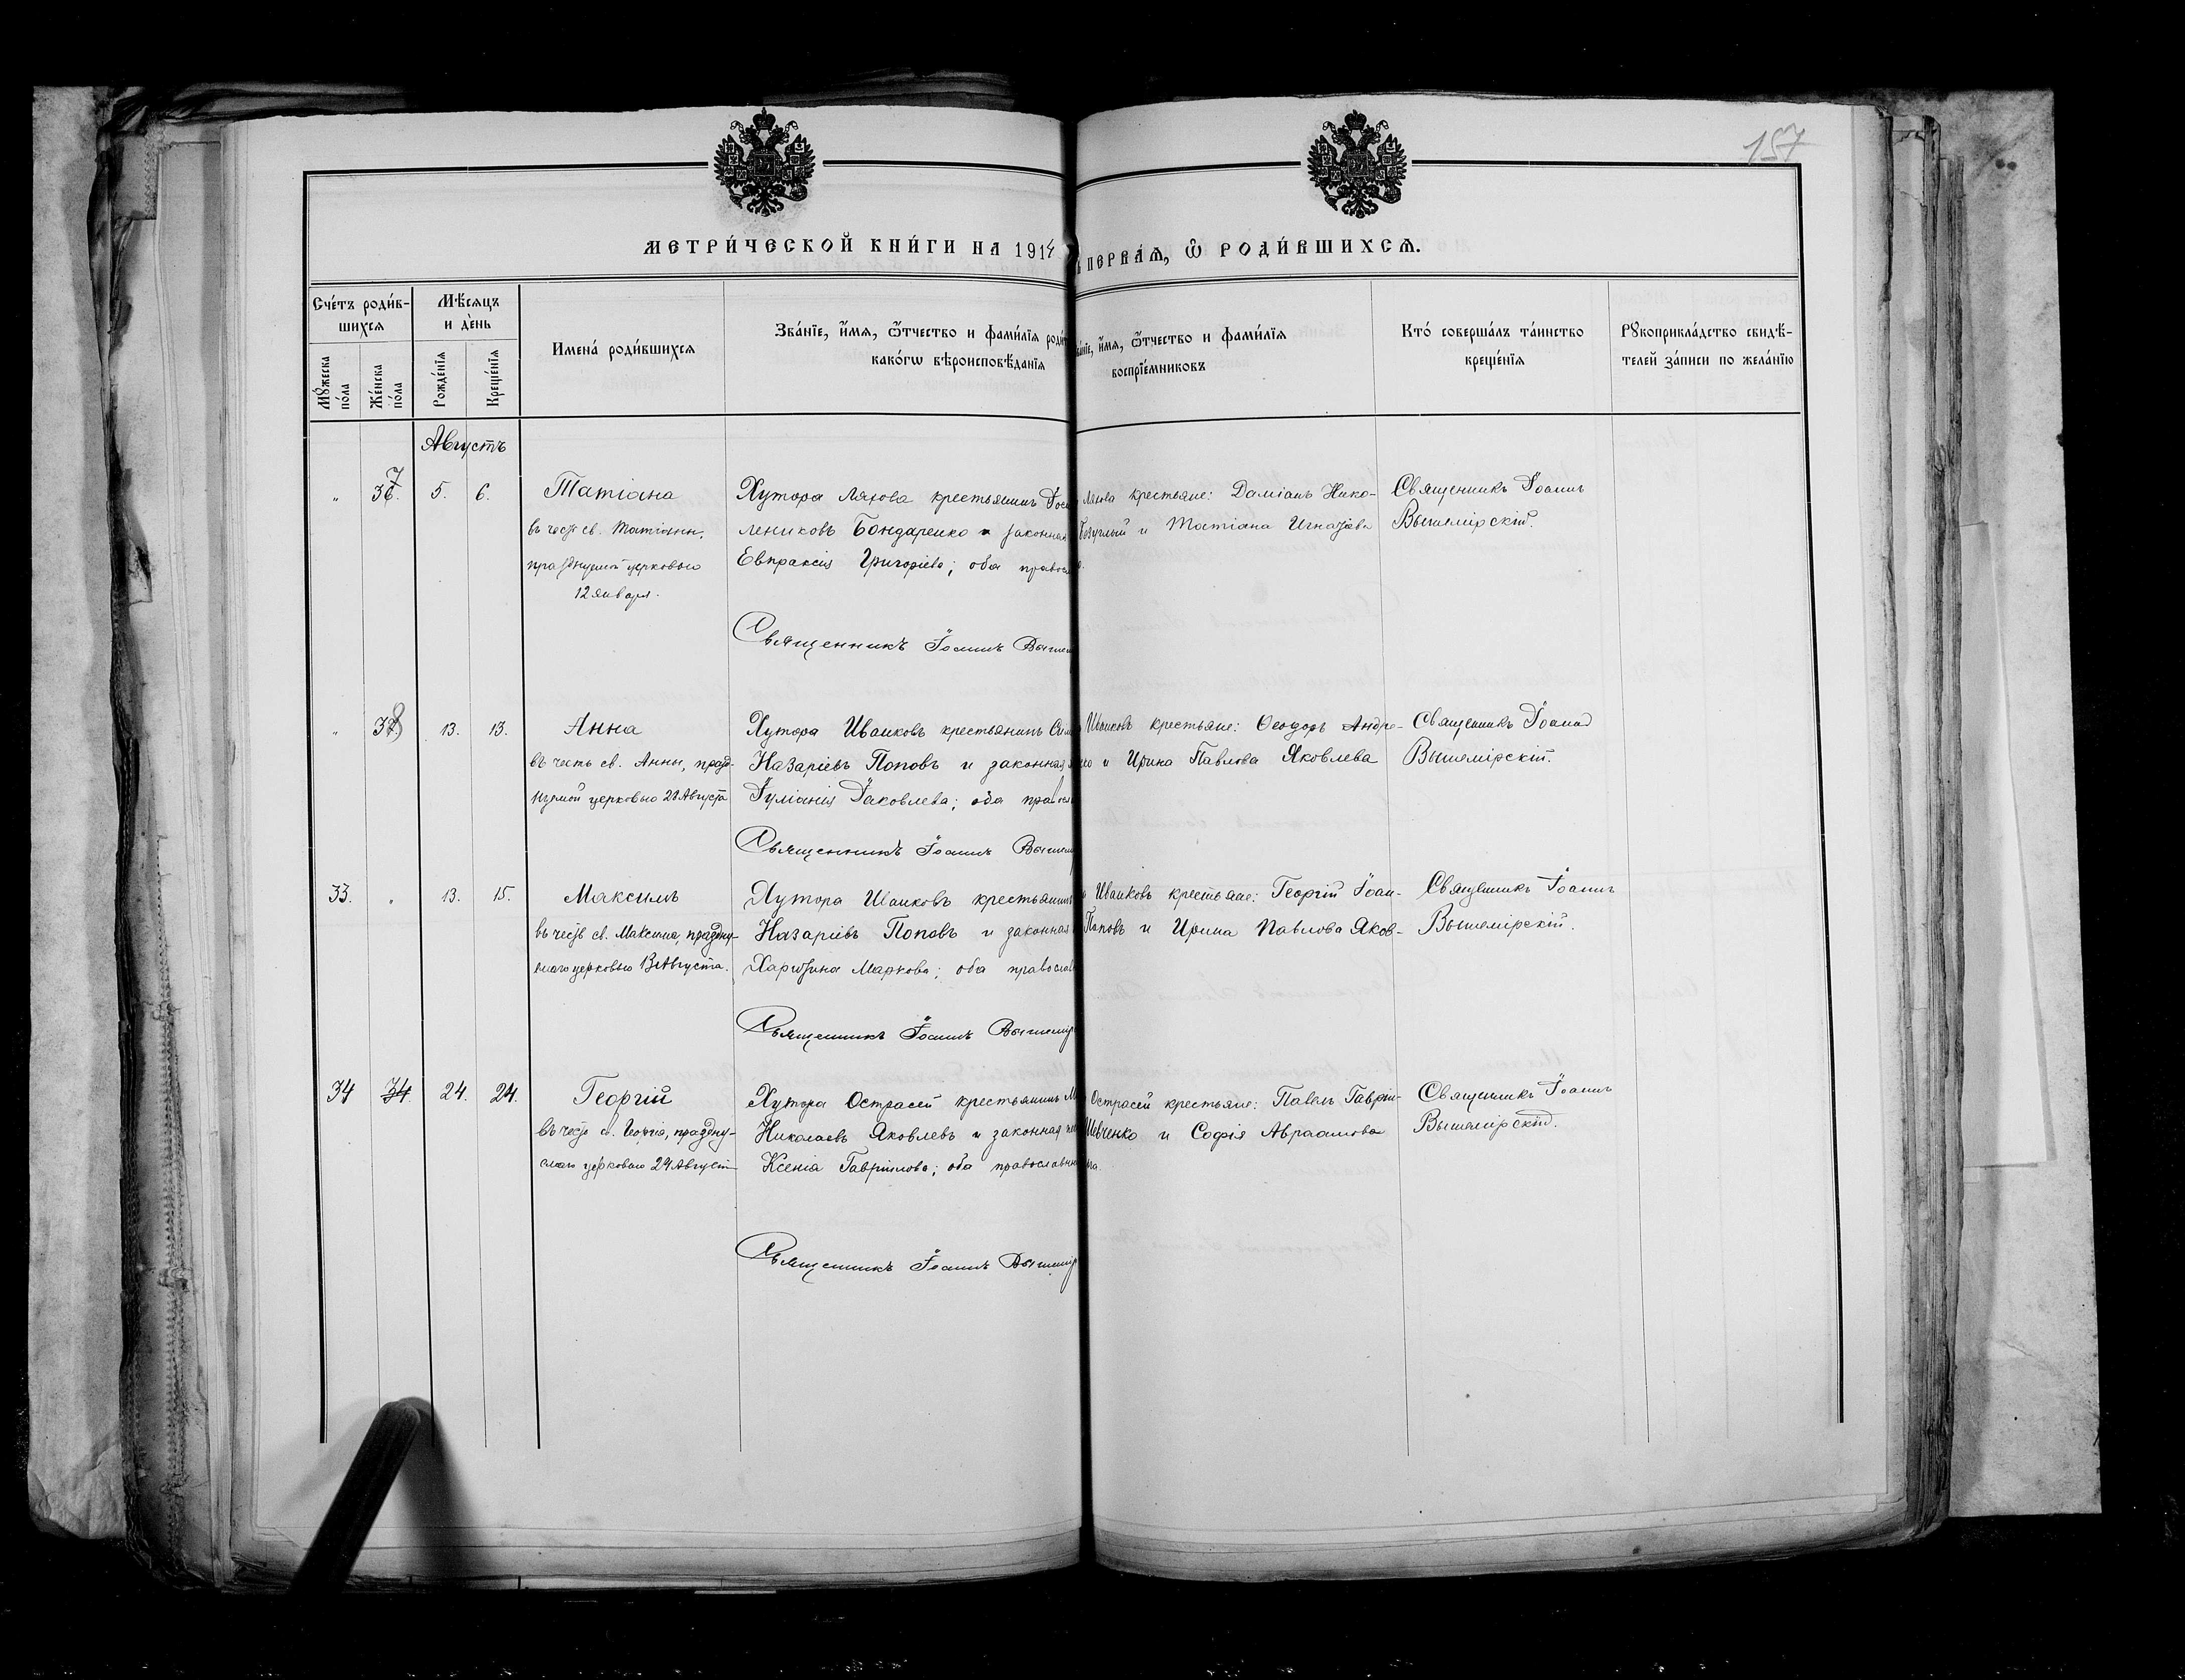 157
МЕТРИ́ЧЕСКОЙ КНИ́ГИ НА 1914
ПЕРВАѦ, Ѿ РОДИ́ВШИХСѦ.
Счéтъ роди́в-
шихсѧ
Мꙋ́жеска
по́ла
Же́нска
по́ла
Мѣ́сѧцъ
и де́нь
Рожде́нїѧ
Креще́нїѧ
Имена́ роди́вшихсѧ
Зва́нїе, и́мѧ, ѻ҆́тчество и фами́лїѧ роди
како́гѡ вѣроисповѣ́данїѧ
и́мѧ, ѻ҆́тчество и фами́лїѧ
воспрїе́мниковъ
Кто́ соверша́лъ та́инство
креще́нїѧ
Рꙋкоприкла́дство свидѣ́-
телей за́писи по жела́нїю
Августъ
" 37. 5. 6.
Татіана
въ честь св. Татіаны,
празднуемой церковью
12 января.
Хутора Ляхова крестьянинъ
Бондаренко и законная
Евпраксія Григоріева; оба правосл
Священникъ Іоаннъ Вышем
Ляхова крестьяне: Даміанъ Нико-
и Татіана Игнатіева
Священникъ Іоаннъ
Вышемірскій.
" 38 13. 13.
Анна
въ честь св. Анны, празд-
нуемой церковью 28 Августа
Хутора Иванковъ крестьянинъ Сим
Назаріевъ Поповъ и законная
Іуліанія Іаковлева; оба правосл
Священникъ Іоаннъ Вышем
Иванковъ крестьяне: Ѳеодоръ Андре-
и Ирина Павлова Яковлева
Священникъ Іоаннъ
Вышемірскій.
33. " 13. 15.
Максимъ
въ честь св. Максима, праздну-
емаго церковью 13 Августа.
Хутора Иванковъ крестьянинъ
Назаріевъ Поповъ и законная
Харитина Маркова; оба православ
Священникъ Іоаннъ Вышемір
Иванковъ крестьяне: Георгій Іоан-
Поповъ и Ирина Павлова Яков-
Священникъ Іоаннъ
Вышемірскій.
34 34. 24. 24.
Георгій
въ честь св. Георгія, праздну-
емаго церковью 24 Августа
Хутора Острасей крестьянинъ М
Николаевъ Яковлевъ и законная
Ксенія Гавріилова; оба православны
Священникъ Іоаннъ Вышемір
Острасей крестьяне: Павелъ Гавріи-
Шевченко и Софія Авраамова
Священникъ Іоаннъ
Вышемірскій.